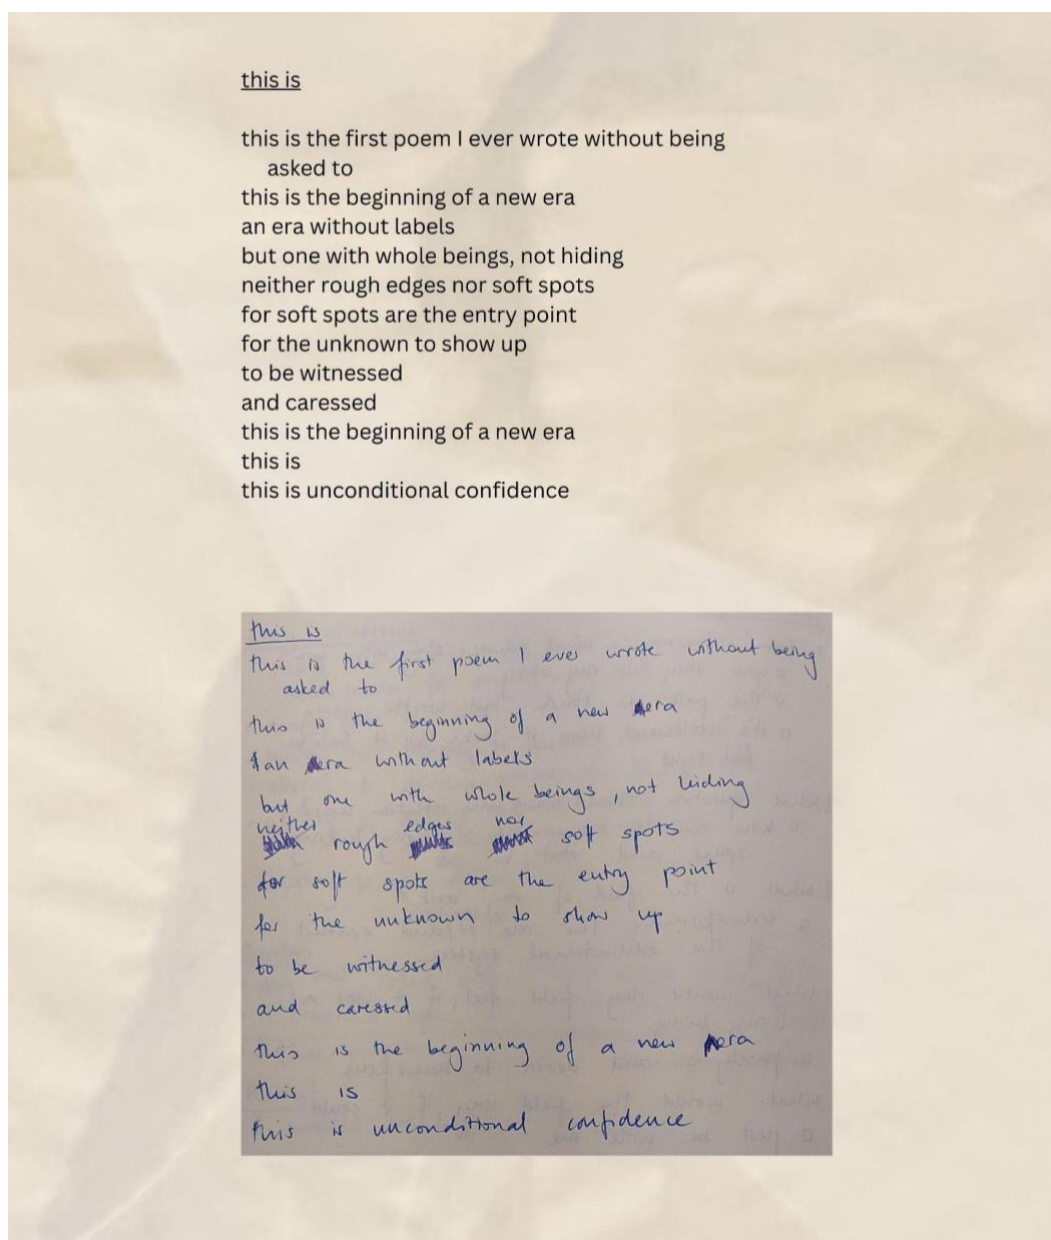 this is
this is the first poem I ever wrote without being
asked to
this is the beginning of a new era
an era without labels
but one with whole beings, not hiding
neither rough edges nor soft spots
for soft spots are the entry point
for the unknown to show up
to be witnessed
and caressed
this is the beginning of a new era
this is
this is unconditional confidence
this is
this is the first poem I ever wrote without being
asked to
this is the beginning of a new era
an era without labels
but one with whole beings, not hiding
neither rough edges nor soft spots
for soft spots are the entry point
for the unknown to show up
to be witnessed
and caressed
this is the beginning of a new era
this is
this is unconditional confidence